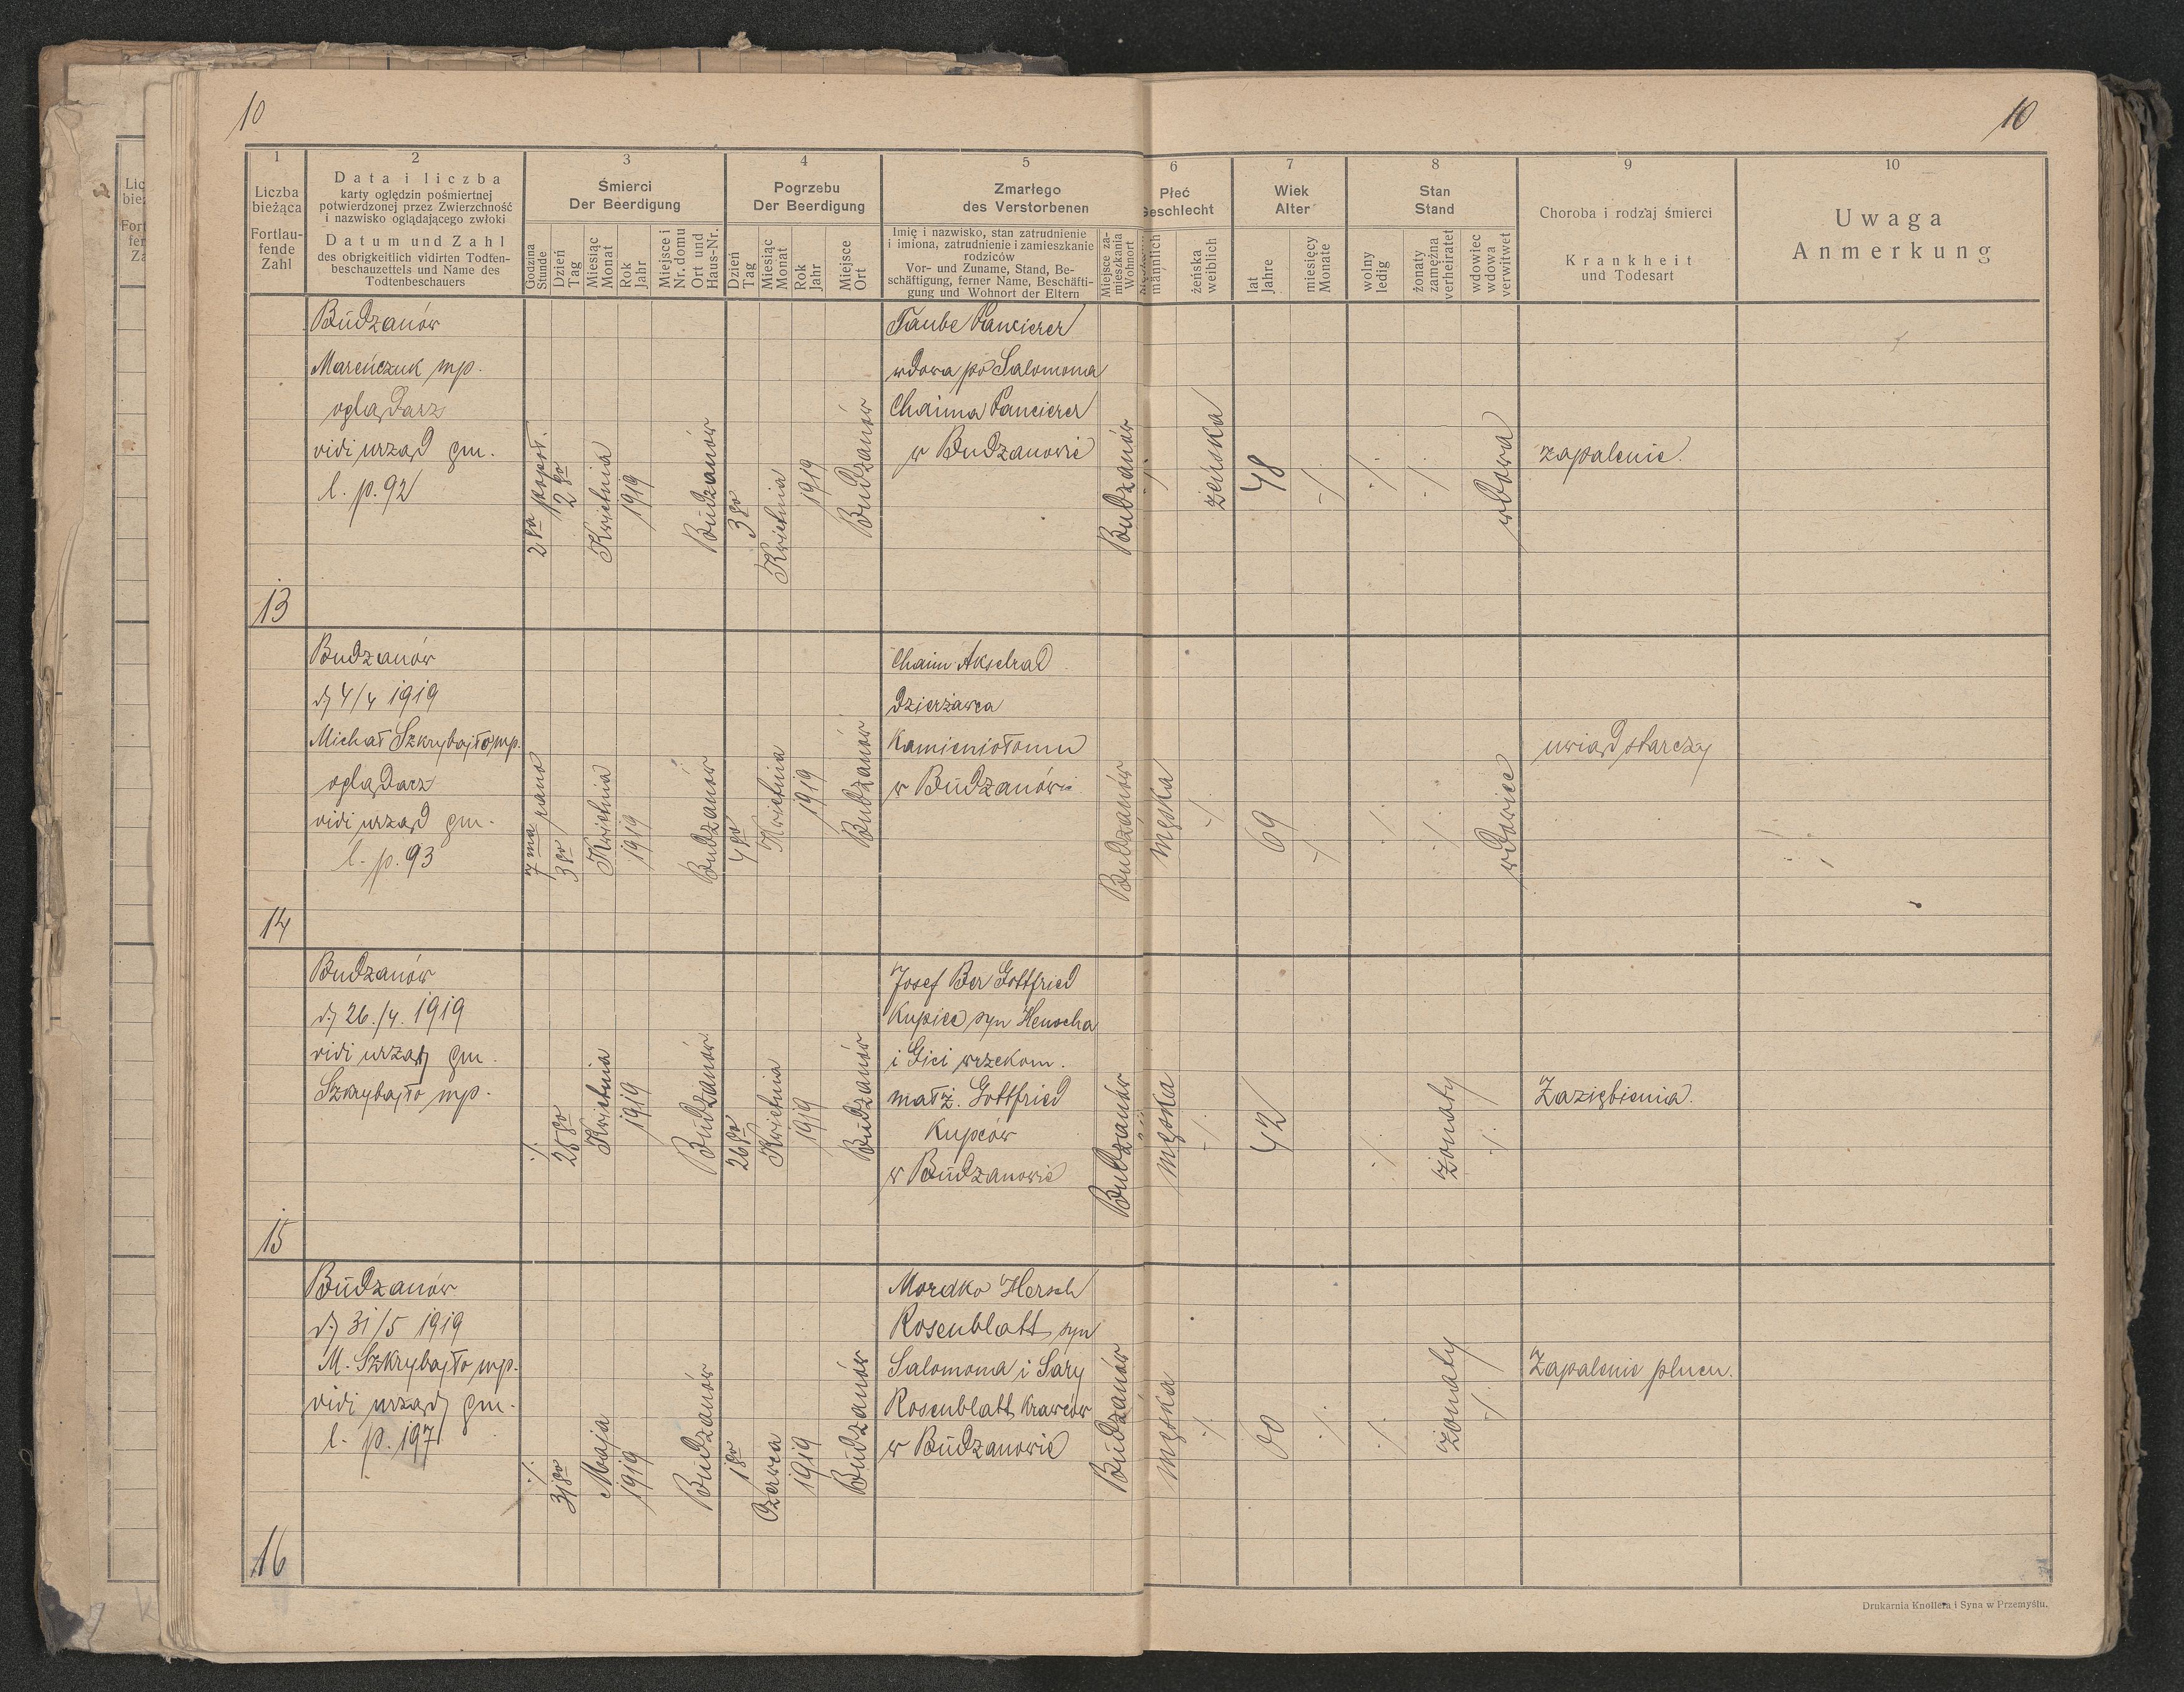 10
10
1
Liczba
bieżąca
Fortlau-
fende
Zahl
2
Data i liczba
karty oględzin pośmiertnej
potwierdzonej przez Zwierzchność
i nazwisko oglądającego zwłoki
Datum und Zahl
des obrigkeitlich vidirten Todten-
beschauzettels und Name des
Todtenbeschauers
3
Śmierci
Der Beerdigung
Godzina
Stunde
Dzień
Tag
Miesiąc
Monat
Rok
Jahr
Miejsce i
Nr. domu
Ort und
Haus-Nr.
4
Pogrzebu
Der Beerdigung
Dzień
Tag
Miesiąc
Monat
Rok
Jahr
Miejsce
Ort
5
Zmarłego
des Verstorbenen
Imię i nazwisko, stan zatrudnienie
i imiona, zatrudnienie i zamieszkanie
rodziców
Vor- und Zuname, Stand, Be-
schäftigung, ferner Name, Beschäfti-
gung und Wohnort der Eltern
Miejsce za-
mieszkania
Wohnort
6
Płeć
Geschlecht
männlich
żeńska
weiblich
7
Wiek
Alter
lat
Jahre
miesięcy
Monate
8
Stan
Stand
wolny
ledig
żonaty
zamężna
verheiratet
wdowiec
wdowa
verwitwet
9
Choroba i rodzaj śmierci
Krankheit
und Todesart
10
Uwaga
Anmerkung
13
Budzanów
Mareńczuk mp.
oglądarz
vidi urząd gm.
l. p. 92
2ga popoł.
2go
Kwietnia
1919
Budzanów
3go
Kwietnia
1919
Budzanów
Taube Pancierer
wdowa po Salomona
Chaima Pancierer
w Budzanowie
Budzanów
./.
żeńska
48
./.
./.
./.
wdowa
zapalenie.
14
Budzanów
d, 4/4 1919
Michał Szkrybajło mp.
oglądarz
vidi urząd gm.
l. p. 93
7ma rano
3go
Kwietnia
1919
Budzanów
4go
Kwietnia
1919
Budzanów
Chaim Akselrad
dzierżawca
Kamieniołomu
w Budzanówie
Budzanów
męska
./.
69
./.
./.
./.
wdowiec
uwiąd starczy
15
Budzanów
d, 26./4. 1919
vidi urząd gm.
Szkrybajło mp.
./.
25go
Kwietnia
1919
Budzanów
26go
Kwietnia
1919
Budzanów
Josef Ber Gottfried
Kupiec syn Henocha
i Gici wrzekom.
małż. Gottfried
Kupców
w Budzanowie
Budzanów
męska
./.
42
./.
żonaty
./.
Zaziębienia.
16
Budzanów
d, 31/5 1919
M. Szkrybajło mp.
vidi urząd gm.
l. p. 197
./.
31go
Maja
1919
Budzanów
1go
Czerwca
1919
Budzanów
Mordko Hersch
Rosenblatt syn
Salomona i Sary
Rosenblatt Krawców
w Budzanowie
Budzanów
męska
./.
60
./.
./.
żonaty
./.
Zapalenie płucn.
Drukarnia Knollera i Syna w Przemyślu.